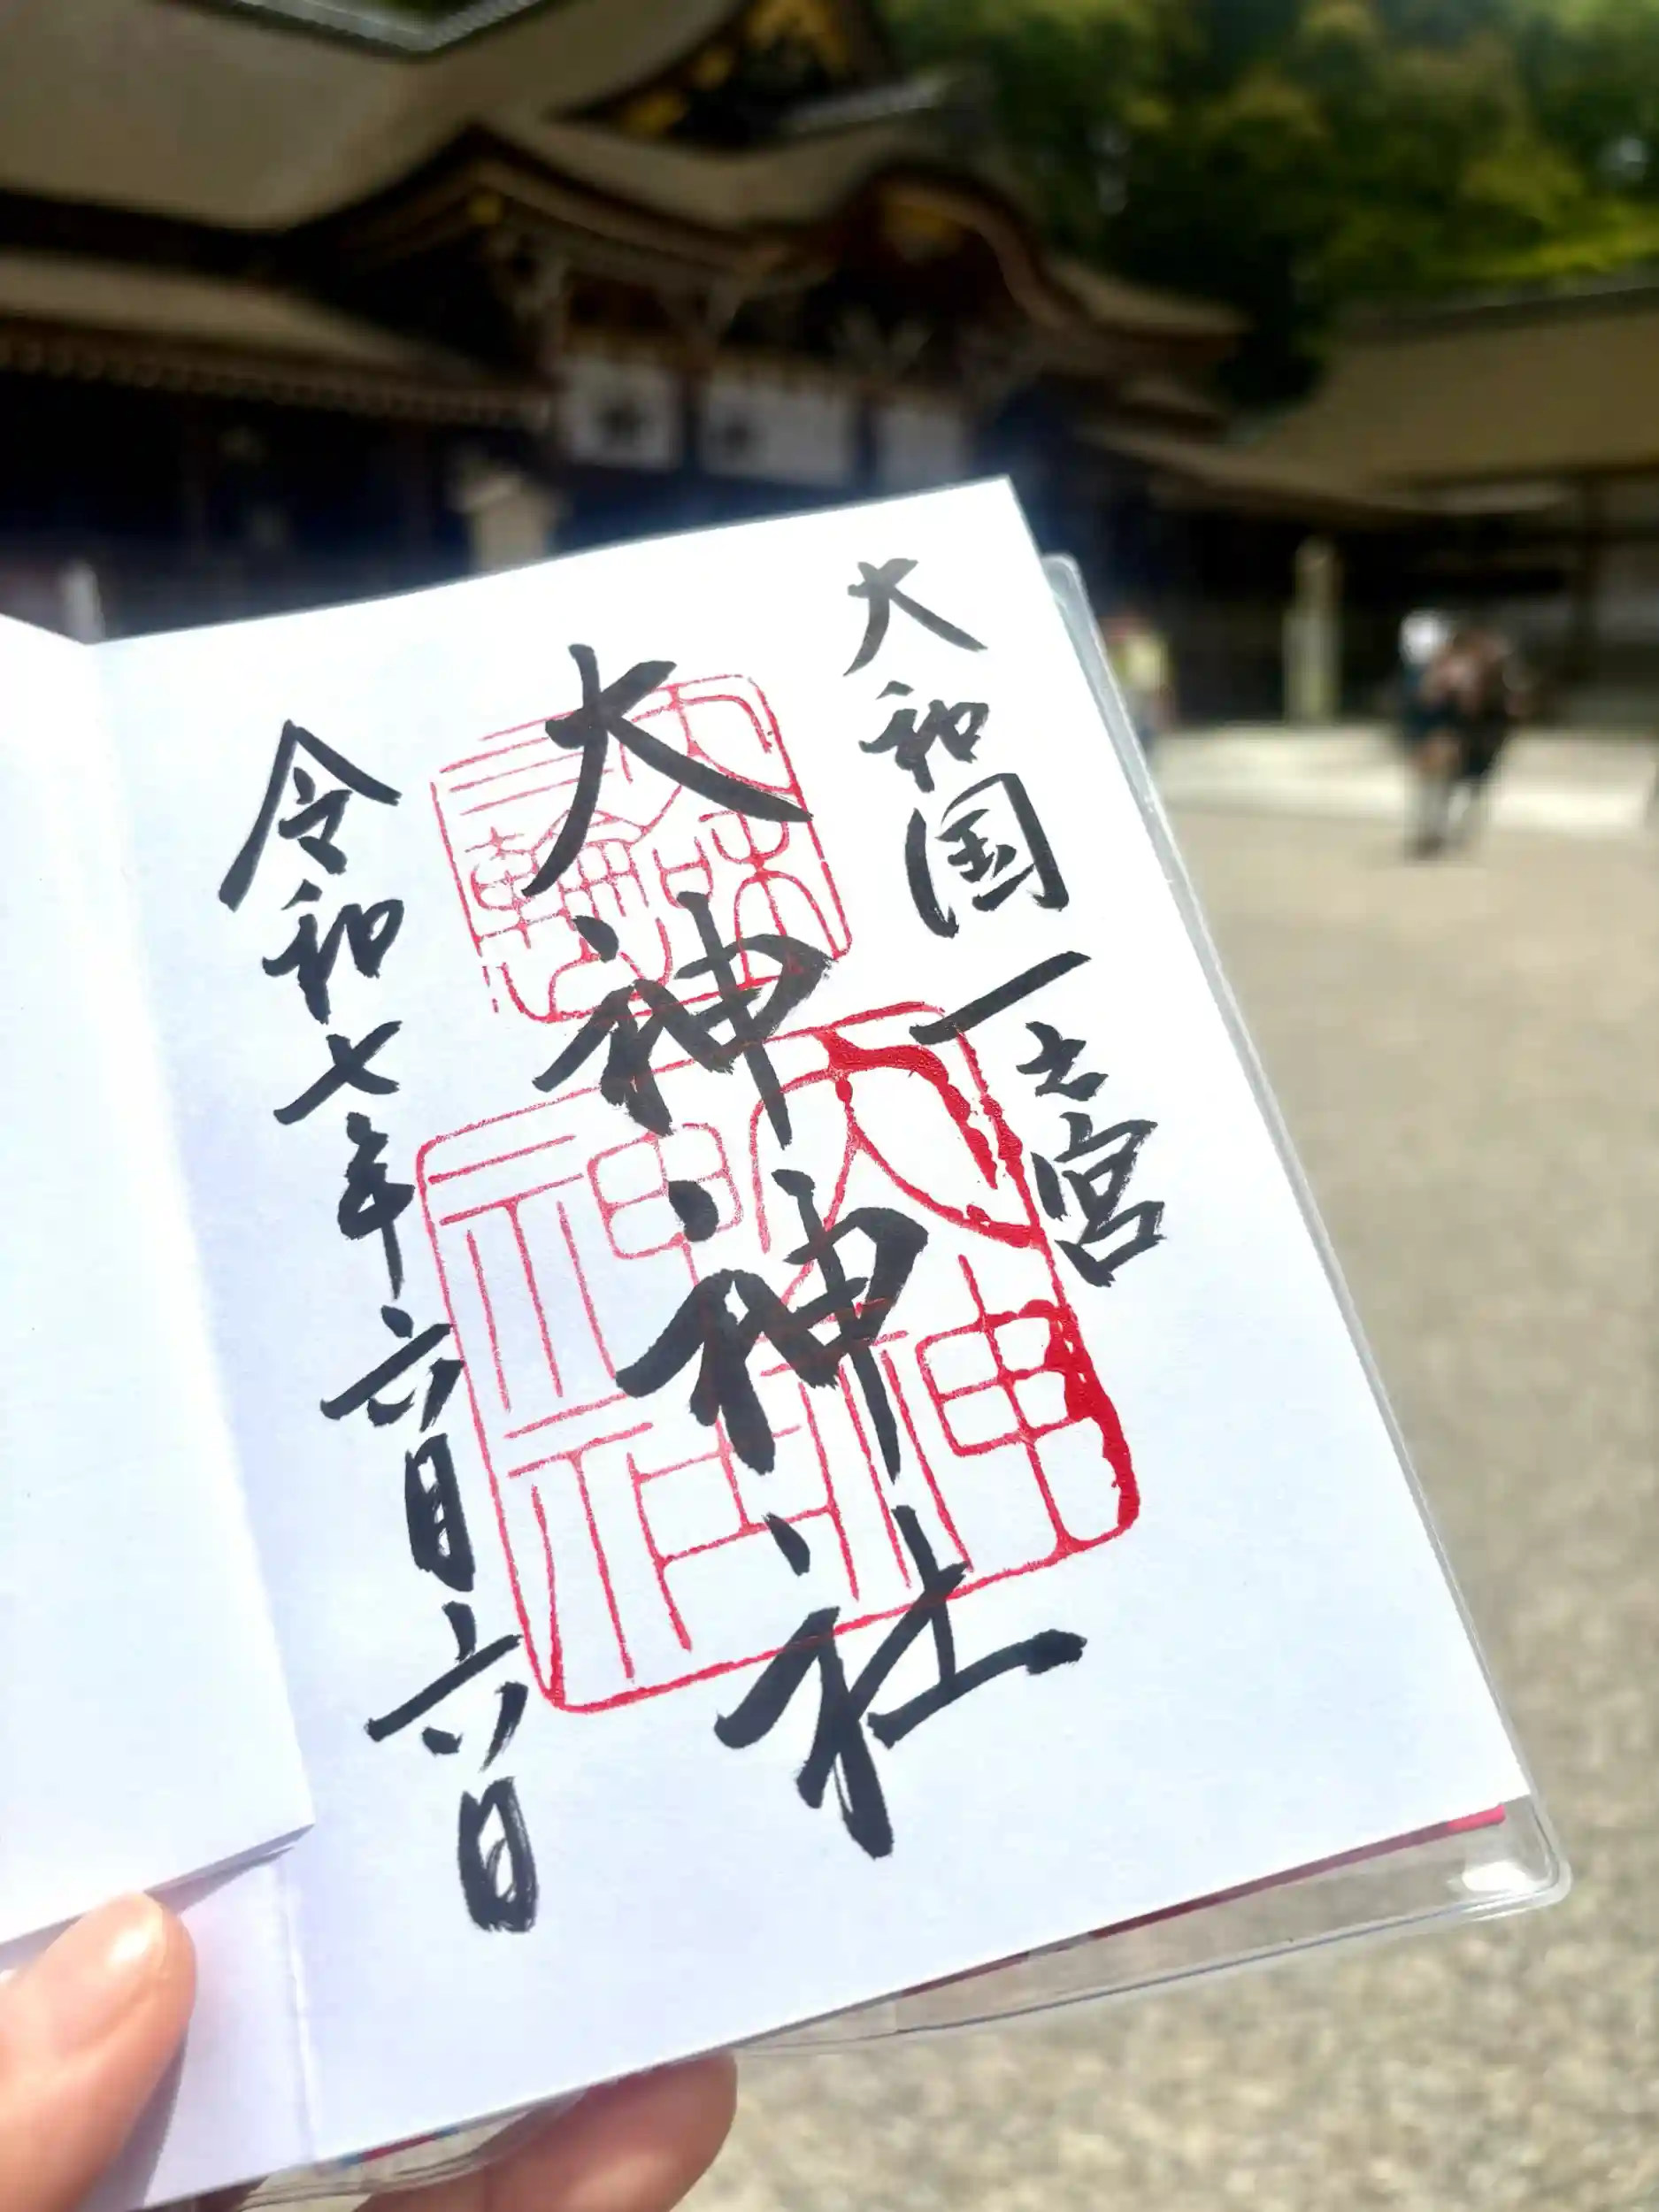 大和国一之宮
大神神社
令和七年六月六日
大神
神社